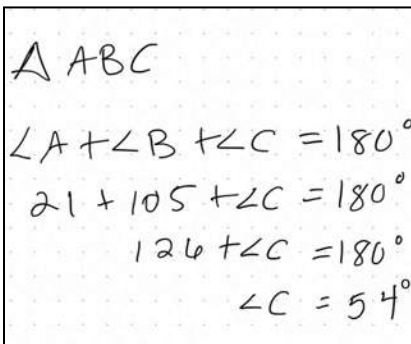 △ ABC
∠A+∠B+∠C = 180°
21 + 105 +∠C = 180°
126 +∠C = 180°
∠C = 54°